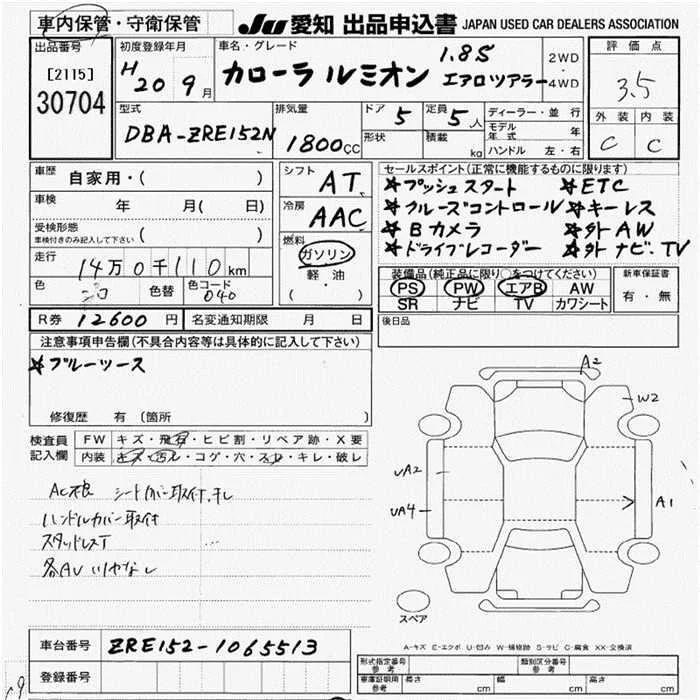 車内保管・守衛保管
JU 愛知 出品申込書 JAPAN USED CAR DEALERS ASSOCIATION
出品番号
[2115]
30704
初度登録年月
H 20 9月
車名・グレード
カローラ ルミオン
1.8S
エアロツアラー
2WD
・
4WD
評価点
3.5
外装 内装
C C
型式
DBA-ZRE152N
排気量
1800CC
ドア 5
定員 5人
形状
積載 kg
ディーラー・並行
モデル年式 年
ハンドル 左・右
車歴 自家用・( )
車検 年 月( 日)
受検形態
車検付きのみ記入して下さい ( )
走行 14万0千110km
色
色替
色コード 040
シフト AT
冷房 AAC
燃料
ガソリン
軽油
( ・ )
セールスポイント(正常に機能するものに限ります)
☆プッシュスタート ☆ETC
☆クルーズコントロール ☆キーレス
☆Bカメラ ☆外AW
☆ドライブレコーダー ☆外ナビ.TV
装備品(純正品に限り○をつけてください)
PS PW エアB AW
SR ナビ TV カワシート
新車保証書
有・無
R券 12600円 名変通知期限 月 日
後日品
注意事項申告欄(不具合内容等は具体的に記入して下さい)
☆ブルーツース
修復歴 有 〔箇所
検査員
記入欄
FW キズ・飛石・ヒビ割・リペア跡・X要
内装 キズ・汚レ・コゲ・穴・スレ・キレ・破レ
シートカバー取付.
ハンドルカバー取付
スタッドレスT
A2
W2
UA2
UA4
A1
スペア
A-キズ E-エクボ U-凹み W-補修跡 S-サビ C-腐食 XX-交換済
車台番号 ZRE152-1065513
登録番号
型式指定番号
参考
類別区分番号
参考
車庫証明用
参考
長さ cm 幅 cm 高さ cm